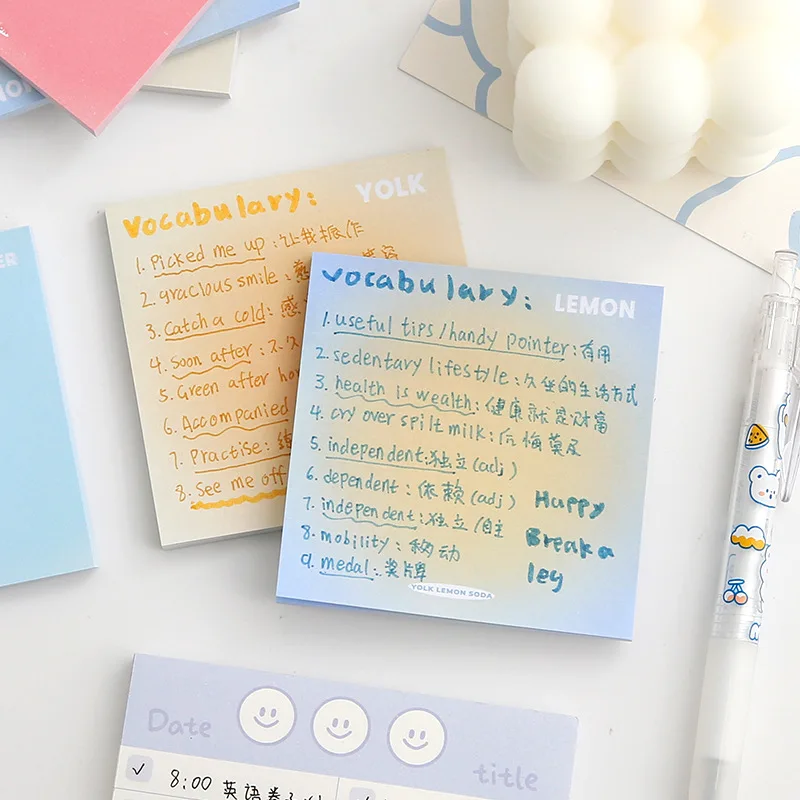 YOLK
vocabulary:
1. Picked me up: 让我振作
2. gracious smile:
3. catch a cold: 感
4. soon after: 不久
5. Green after
6. Accompanied
7. Practise:
8. See me off
LEMON
vocabulary:
1. useful tips/handy pointer: 有用
2. sedentary lifestyle: 久坐的生活方式
3. health is wealth: 健康就是财富
4. cry over spilt milk: 后悔莫及
5. independent: 独立(adj)
6. dependent: 依赖(adj)
7. independent: 独立/自主
8. mobility: 移动
9. medal: 奖牌
Happy
Break a
leg
YOLK LEMON SODA
Date
title
8:00 英语卷子